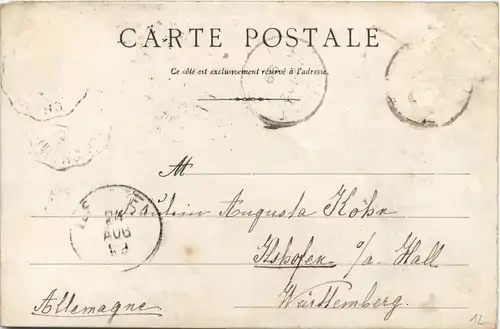 CARTE POSTALE
Ce côté est exclusivement réservé à l'adresse.
At
Fräulein Augusta Köhn
24
AUG
Ilshofen o/a. Hall
Allemagne
Württemberg.
12